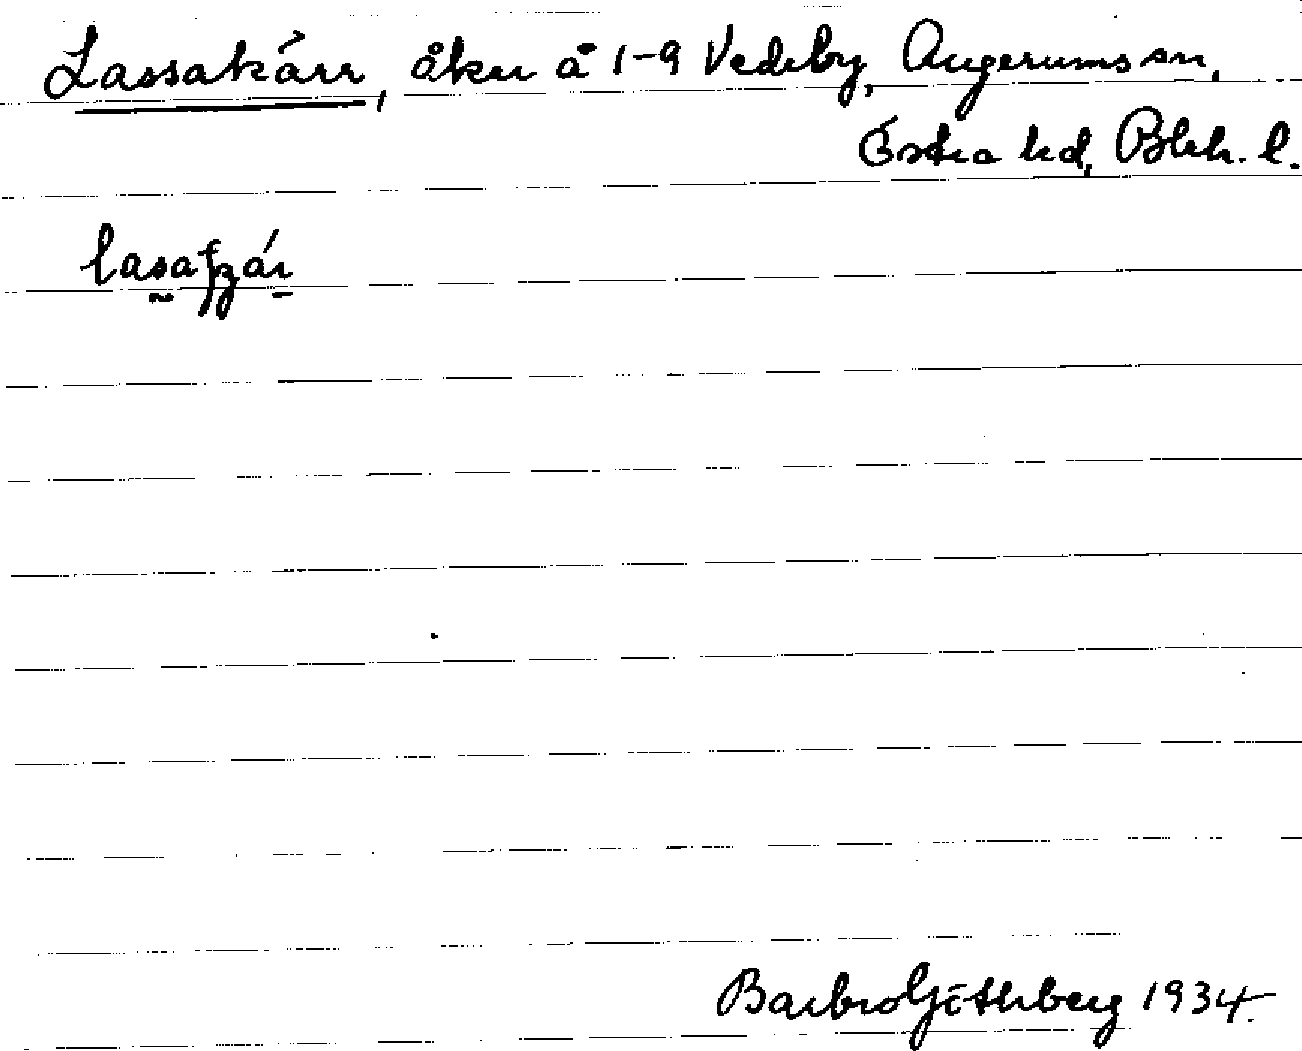 Lassakärr, åker å 1-9 Vedeby, Augerums sn,
Östra hd, Blek. l.
Barbro Göthberg 1934.